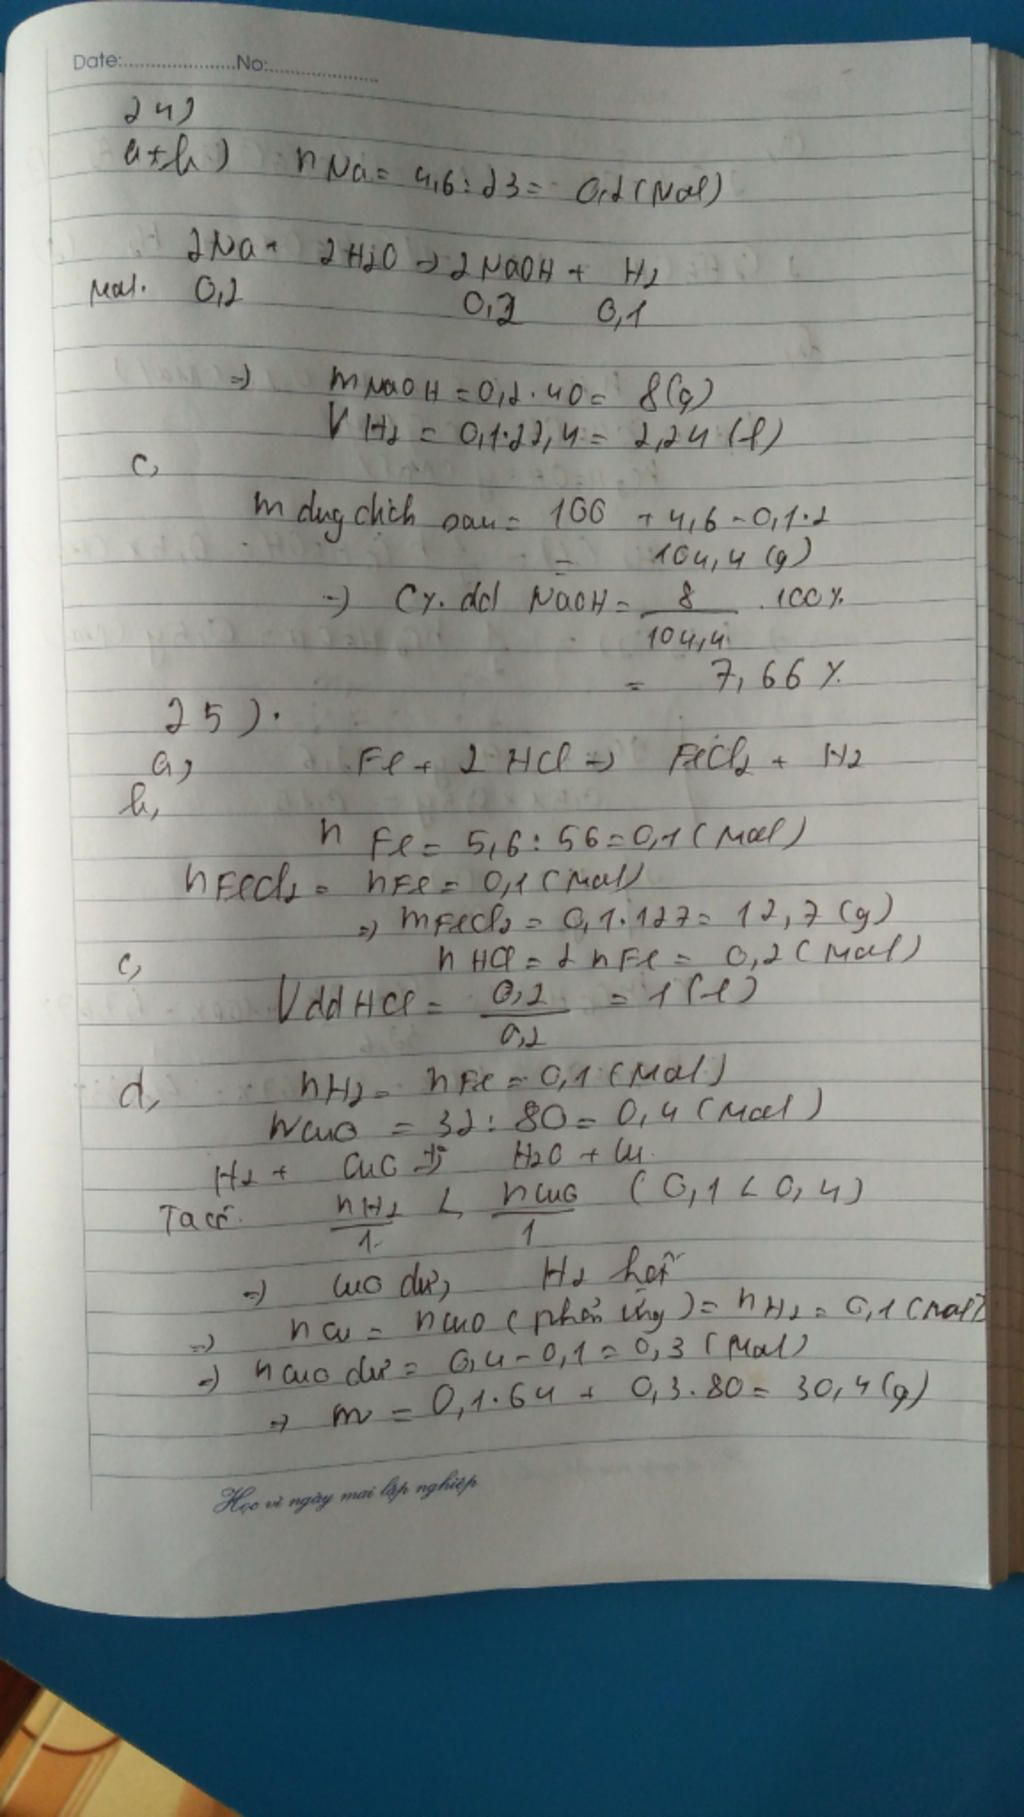 Date:......................No:.....................
24)
a+b) nNa = 4,6 : 23 = 0,2 (mol)
2Na + 2H2O → 2NaOH + H2
Mol. 0,2 0,2 0,1
⇒ mNaOH = 0,2 . 40 = 8 (g)
VH2 = 0,1.22,4 = 2,24 (l)
c,
m dung dịch sau = 100 + 4,6 - 0,1.2
= 104,4 (g)
⇒ C%. dd NaOH = 8/104,4 .100%
= 7,66 %
25).
a, Fe + 2HCl → FeCl2 + H2
b,
n Fe = 5,6 : 56 = 0,1 (mol)
nFeCl2 = nFe = 0,1 (mol)
⇒ mFeCl2 = 0,1.127 = 12,7 (g)
c, nHCl = 2nFe = 0,2 (mol)
VddHCl = 0,2/0,2 = 1 (l)
d, nH2 = nFe = 0,1 (mol)
nCuO = 32 : 80 = 0,4 (mol)
H2 + CuO → H2O + Cu
Ta có. nH2/1 < nCuO/1 (0,1 < 0,4)
⇒ CuO dư, H2 hết
⇒ nCu = nCuO (phản ứng) = nH2 = 0,1 (mol)
⇒ nCuO dư = 0,4 - 0,1 = 0,3 (mol)
⇒ m = 0,1.64 + 0,3.80 = 30,4 (g)
Học vì ngày mai lập nghiệp